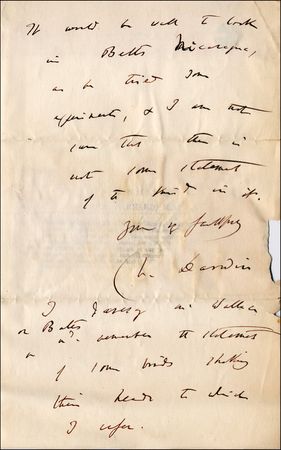 It would be well to look
in Belts Nicaragua,
as he tried some
experiments, & I am not
sure that there is
not some statement
of the kind in it.
Yours faithfully
Ch. Darwin
I daresay in Wallace
or Bates
remember the statement
of some birds
their heads to which
I refer.